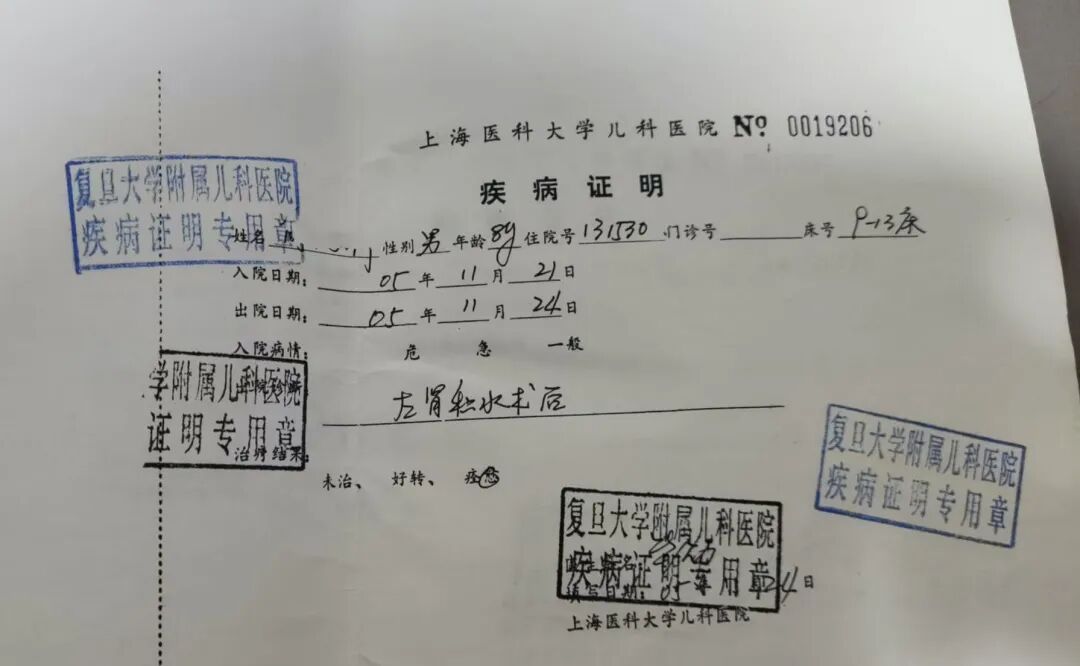 上海医科大学儿科医院 No 0019206
疾病证明
复旦大学附属儿科医院
疾病证明专用章
姓名 性别 男 年龄 8y 住院号 131530 门诊号 床号 9-13床
入院日期： 05 年 11 月 21 日
出院日期： 05 年 11 月 24 日
入院病情： 危 急 一般
学附属儿科医院
证明专用章
左肾积水术后
治疗结果：
未治、 好转、 痊愈
复旦大学附属儿科医院
疾病证明专用章
复旦大学附属儿科医院
疾病证明专用章
填写日期： 05 24 日
上海医科大学儿科医院